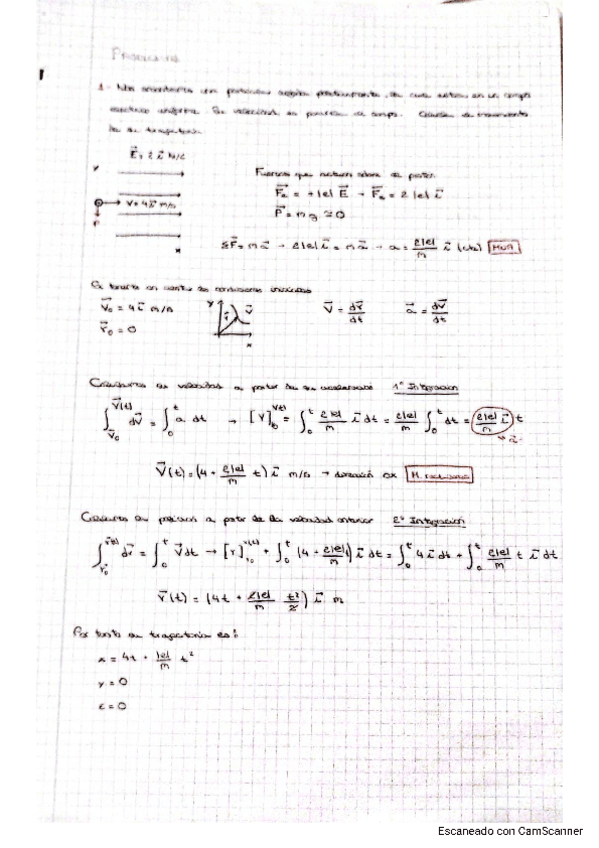 PROBLEMAS
1- Nos encontramos una partícula positiva, la cual entra en un campo
eléctrico uniforme. Su velocidad es paralela al campo.
la trayectoria
E, 2 i N/C
y
Fuerzas que actúan sobre la
Fe = +|e| E → Fe = 2|e| i
V = 4i m/s
P = mg ≈ 0
F
x
ΣF = m a → 2|e| i = m a → a = 2|e|/m i (cte) MUA
en cuenta las condiciones iniciales
V₀ = 4 i m/s
r₀ = 0
y
r
v
x
V = dr/dt
a = dv/dt
Calculamos la velocidad a partir de su aceleración 1ª Integración
∫_{V₀}^{V(t)} dv = ∫₀ᵗ a dt → [V]^{V(t)} = ∫₀ᵗ 2|e|/m i dt = 2|e|/m ∫₀ᵗ dt = 2|e|/m i t
V(t) = (4 + 2|e|/m t) i m/s → dirección OX M. rectilíneo
Calculamos su posición a partir de la velocidad anterior 2ª Integración
∫_{r₀}^{r(t)} dr = ∫₀ᵗ V dt → [r]_{r₀}^{r(t)} + ∫₀ᵗ (4 + 2|e|/m t) i dt = ∫₀ᵗ 4 i dt + ∫₀ᵗ 2|e|/m t i dt
r(t) = (4t + 2|e|/m t²/2) i m
Por tanto su trayectoria es:
x = 4t + |e|/m t²
y = 0
z = 0
Escaneado con CamScanner